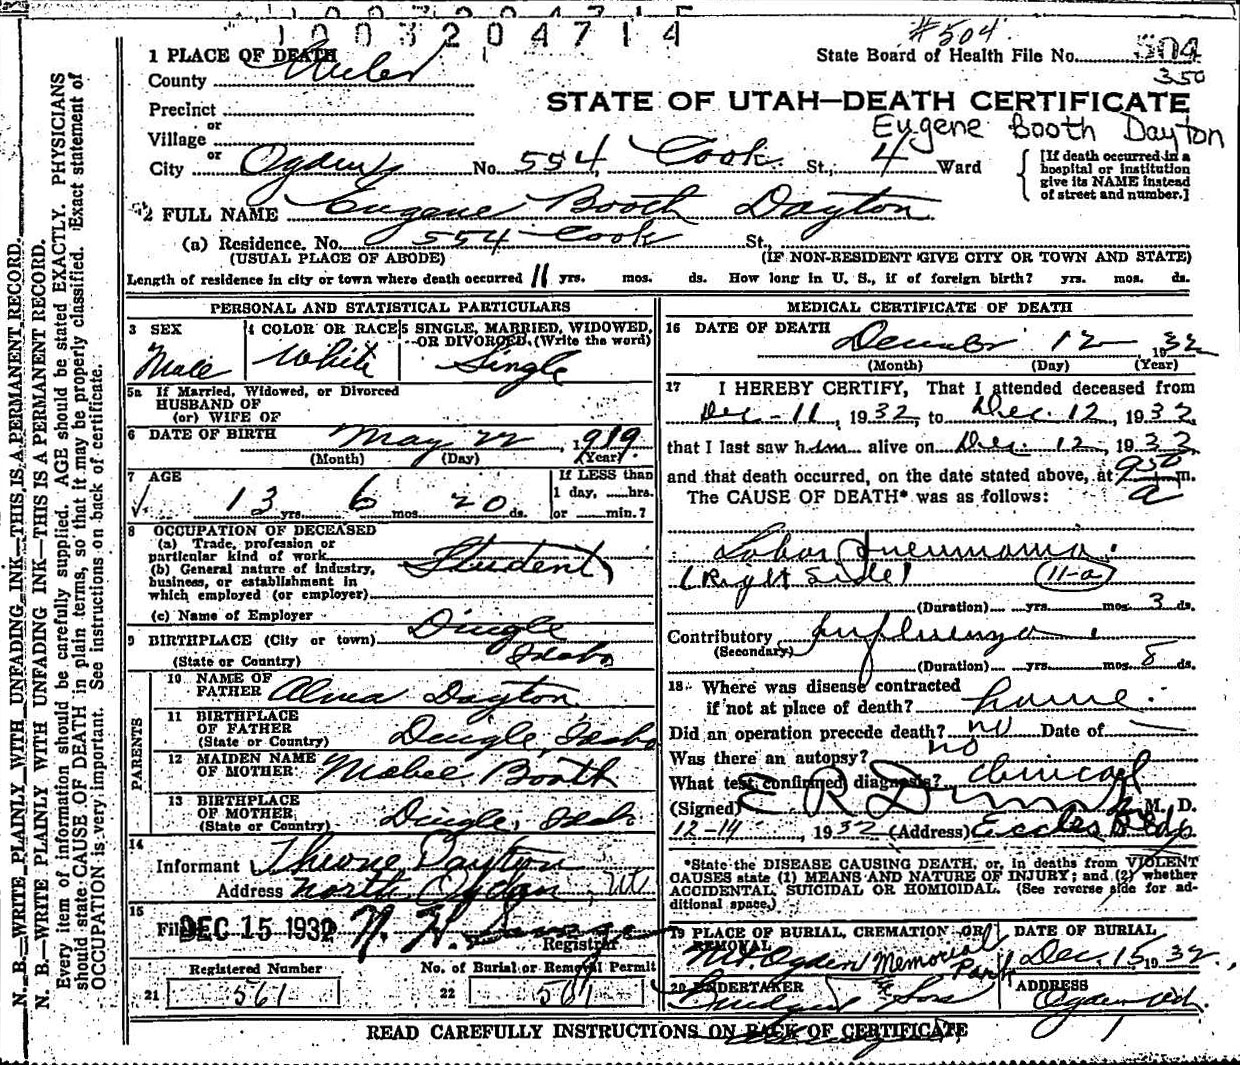 1003204714
#504
1 PLACE OF DEATH
State Board of Health File No. 504
350
County Weber
STATE OF UTAH—DEATH CERTIFICATE
Precinct
Eugene Booth Dayton
or
Village
or
City Ogden No. 554 Cook St., 4 Ward
[If death occurred in a
hospital or institution
give its NAME instead
of street and number.]
2 FULL NAME Eugene Booth Dayton
(a) Residence. No. 554 Cook St.,
(USUAL PLACE OF ABODE) (IF NON-RESIDENT GIVE CITY OR TOWN AND STATE)
Length of residence in city or town where death occurred 11 yrs. mos. ds. How long in U. S., if of foreign birth? yrs. mos. ds.
PERSONAL AND STATISTICAL PARTICULARS
3 SEX 4 COLOR OR RACE 5 SINGLE, MARRIED, WIDOWED,
OR DIVORCED. (Write the word)
Male White Single
5a If Married, Widowed, or Divorced
HUSBAND OF
(or) WIFE OF
6 DATE OF BIRTH May 22, 1919
(Month) (Day) (Year)
7 AGE If LESS than
13 yrs. 6 mos. 20 ds. 1 day, hrs.
or min.?
8 OCCUPATION OF DECEASED
(a) Trade, profession or
particular kind of work
Student
(b) General nature of industry,
business, or establishment in
which employed (or employer)
(c) Name of Employer
9 BIRTHPLACE (City or town) Dingle
(State or Country) Idaho
PARENTS
10 NAME OF
FATHER Alma Dayton
11 BIRTHPLACE
OF FATHER
(State or Country) Dingle, Idaho
12 MAIDEN NAME
OF MOTHER Mabel Booth
13 BIRTHPLACE
OF MOTHER
(State or Country) Dingle, Idaho
14
Informant Theone Dayton
Address North Ogden, Ut
15
Filed DEC 15 1932
Registrar
Registered Number No. of Burial or Removal Permit
21 561 22 561
MEDICAL CERTIFICATE OF DEATH
16 DATE OF DEATH
December 12 1932
(Month) (Day) (Year)
17 I HEREBY CERTIFY, That I attended deceased from
Dec-11, 1932, to Dec. 12, 1932
that I last saw him alive on Dec. 12, 1932
and that death occurred, on the date stated above, at 9:50 a m.
The CAUSE OF DEATH* was as follows:
Lobar Pneumonia.
(Right side) 11-a
(Duration) yrs. mos. 3 ds.
Contributory Influenza
(Secondary)
(Duration) yrs. mos. 8 ds.
18 Where was disease contracted
if not at place of death? home.
Did an operation precede death? no Date of
Was there an autopsy? no
What test confirmed diagnosis? clinical
(Signed) E R M. D.
12-14, 1932 (Address) Eccles Bldg
*State the DISEASE CAUSING DEATH, or, in deaths from VIOLENT
CAUSES state (1) MEANS AND NATURE OF INJURY; and (2) whether
ACCIDENTAL, SUICIDAL OR HOMICIDAL. (See reverse side for ad-
ditional space.)
19 PLACE OF BURIAL, CREMATION OR
REMOVAL DATE OF BURIAL
Mt. Ogden Memorial Park Dec. 15, 1932
20 UNDERTAKER ADDRESS
& Sons Ogden Ut.
READ CAREFULLY INSTRUCTIONS ON BACK OF CERTIFICATE
N. B.—WRITE PLAINLY WITH UNFADING INK—THIS IS A PERMANENT RECORD.
N. B.—WRITE PLAINLY WITH UNFADING INK—THIS IS A PERMANENT RECORD.
Every item of information should be carefully supplied. AGE should be stated EXACTLY. PHYSICIANS
should state CAUSE OF DEATH in plain terms, so that it may be properly classified. Exact statement of
OCCUPATION is very important. See instructions on back of certificate.